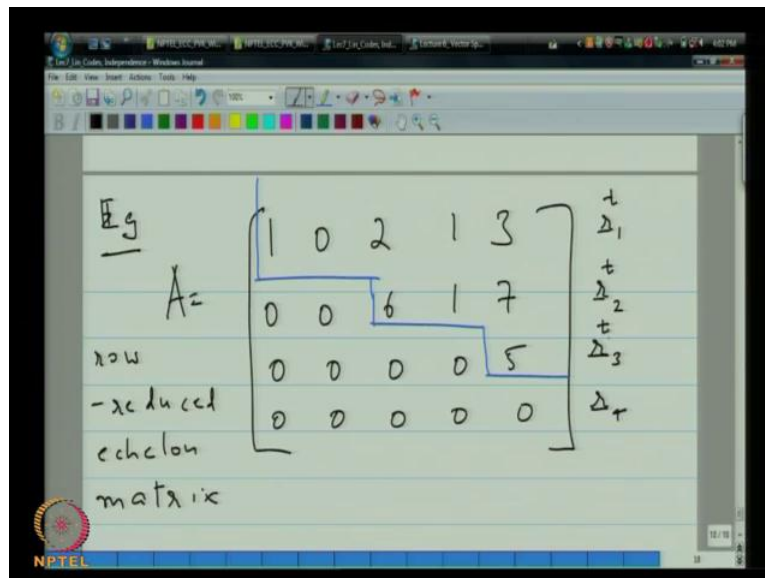 Lec7_Lin_Codes, Independence - Windows Journal
File Edit View Insert Actions Tools Help
Eg
A=
1 0 2 1 3 r₁ᵗ
0 0 6 1 7 r₂ᵗ
0 0 0 0 5 r₃ᵗ
0 0 0 0 0 r₄
row
-reduced
echelon
matrix
NPTEL